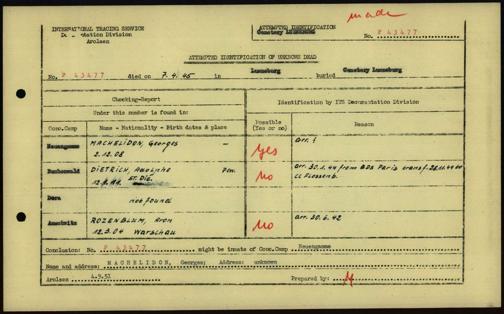 made
INTERNATIONAL TRACING SERVICE
Documentation Division
Arolsen
ATTEMPTED IDENTIFICATION
Cemetery Luneburg
No. F 43477
ATTEMPTED IDENTIFICATION OF UNKNOWN DEAD
No. F 43477 died on 7.4.45 in Luneburg buried Cemetery Luneburg
Checking-Report
Under this number is found in:
Identification by ITS Documentation Division
Conc.Camp Name - Nationality - Birth dates & place Possible (Yes or no) Reason
Neuengamme MACHELIDON, Georges - yes arr. ?
2.12.08
Buchenwald DIETRICH, Adolphe no arr. from BDS Paris transf.
ST. DIE. CC Flossenb.
Dora not found
Auschwitz ROZENBLUM, Aron no arr. 30.6.42
12.3.04 Warschau
Conclusion: No. F 43477 might be inmate of Conc.Camp Neuengamme
Name and address: MACHELIDON, Georges; Address: unknown
Arolsen 4.9.51 Prepared by: